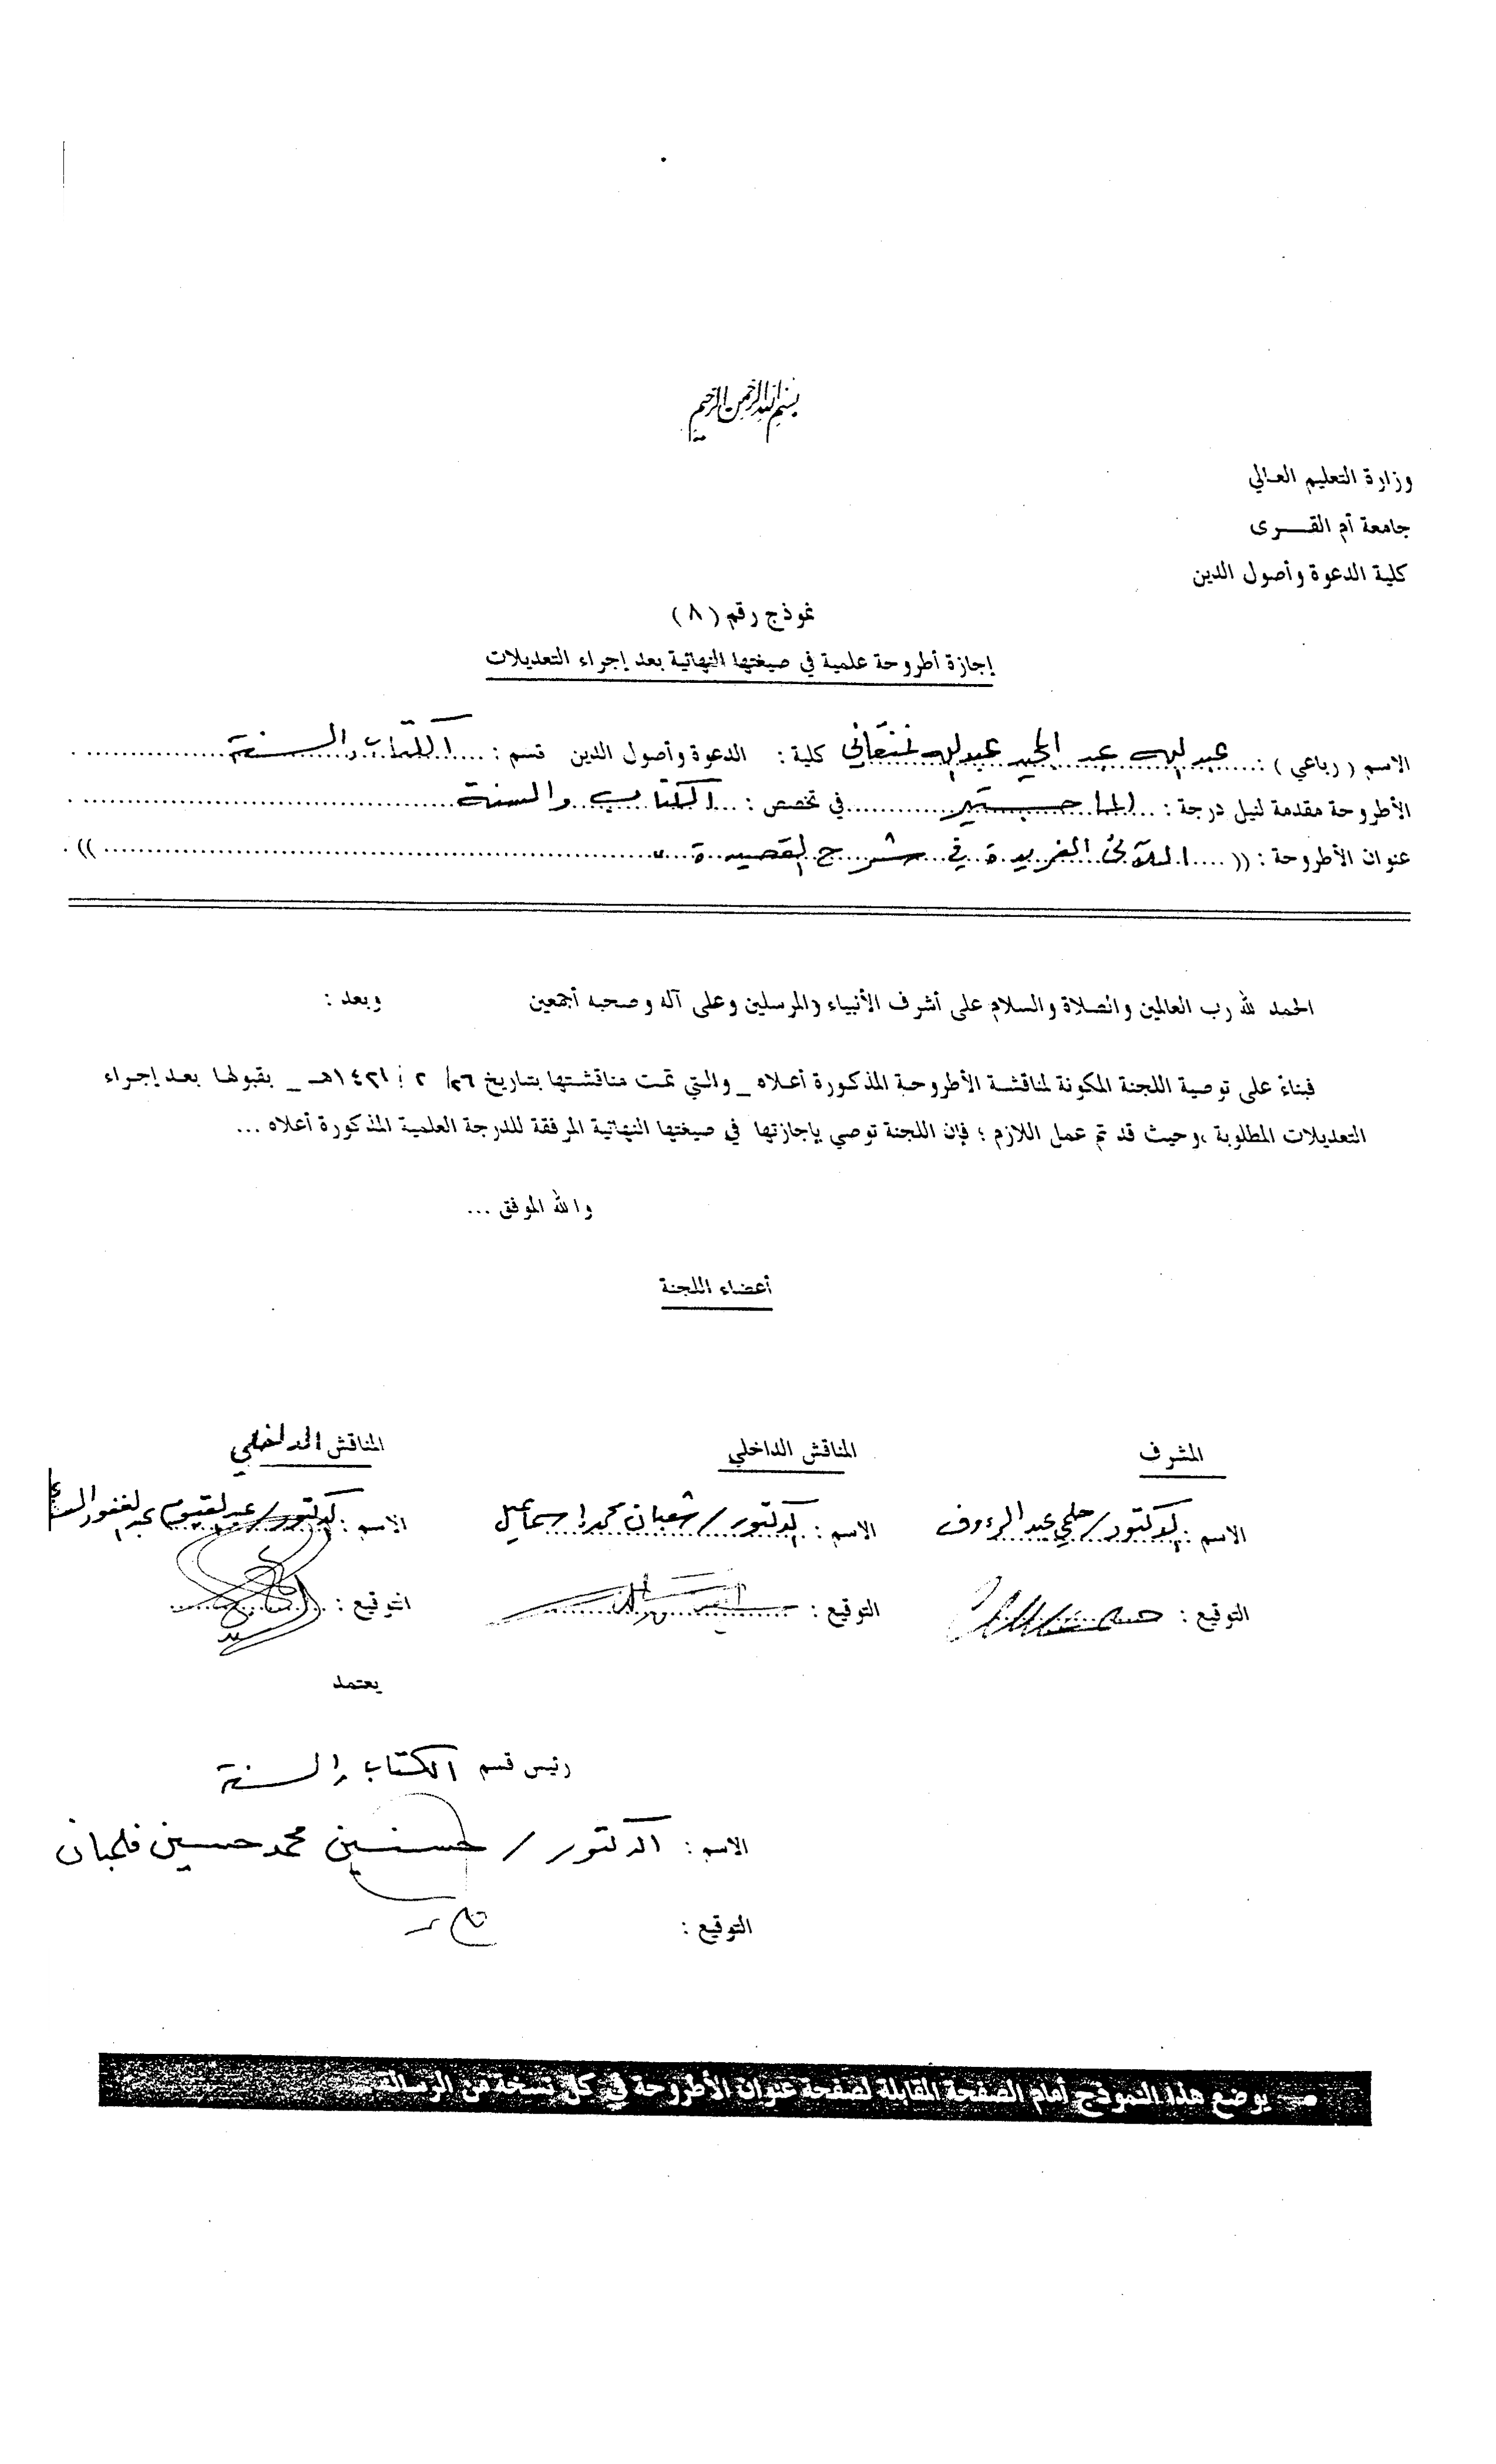 بسم الله الرحمن الرحيم
وزارة التعليم العالي
جامعة أم القـــرى
كلية الدعوة وأصول الدين
نموذج رقم ( ٨ )
إجازة أطروحة علمية في صيغتها النهائية بعد إجراء التعديلات
الاسم ( رباعي ) : عبد الله عبد المجيد عبد الله نمنقاني كلية : الدعوة وأصول الدين قسم : الكتاب والسنة
الأطروحة مقدمة لنيل درجة : الماجستير في تخصص : الكتاب والسنة
عنوان الأطروحة : (( اللآلئ الفريدة في شرح القصيدة )) .
الحمد لله رب العالمين والصلاة والسلام على أشرف الأنبياء والمرسلين وعلى آله وصحبه أجمعين وبعد :
فبناءً على توصية اللجنة المكونة لمناقشة الأطروحة المذكورة أعلاه _ والتي تمت مناقشتها بتاريخ ٢٦/ ٢ / ١٤٢١هـ _ بقبولها بعد إجراء
التعديلات المطلوبة ،وحيث قد تم عمل اللازم ؛ فإن اللجنة توصي بإجازتها في صيغتها النهائية المرفقة للدرجة العلمية المذكورة أعلاه ...
والله الموفق ...
أعضاء اللجنة
المشرف المناقش الداخلي المناقش الداخلي
الاسم : الدكتور/ حلمي عبد الرءوف الاسم : الدكتور/ شعبان محمد إسماعيل الاسم : الدكتور/ عبد القيوم عبد الغفور
التوقيع : التوقيع : التوقيع :
يعتمد
رئيس قسم الكتاب والسنة
الاسم : الدكتور / حسنين محمد حسين فلمبان
التوقيع :
– يوضع هذا النموذج أمام الصفحة المقابلة لصفحة عنوان الأطروحة في كل نسخة من الرسالة